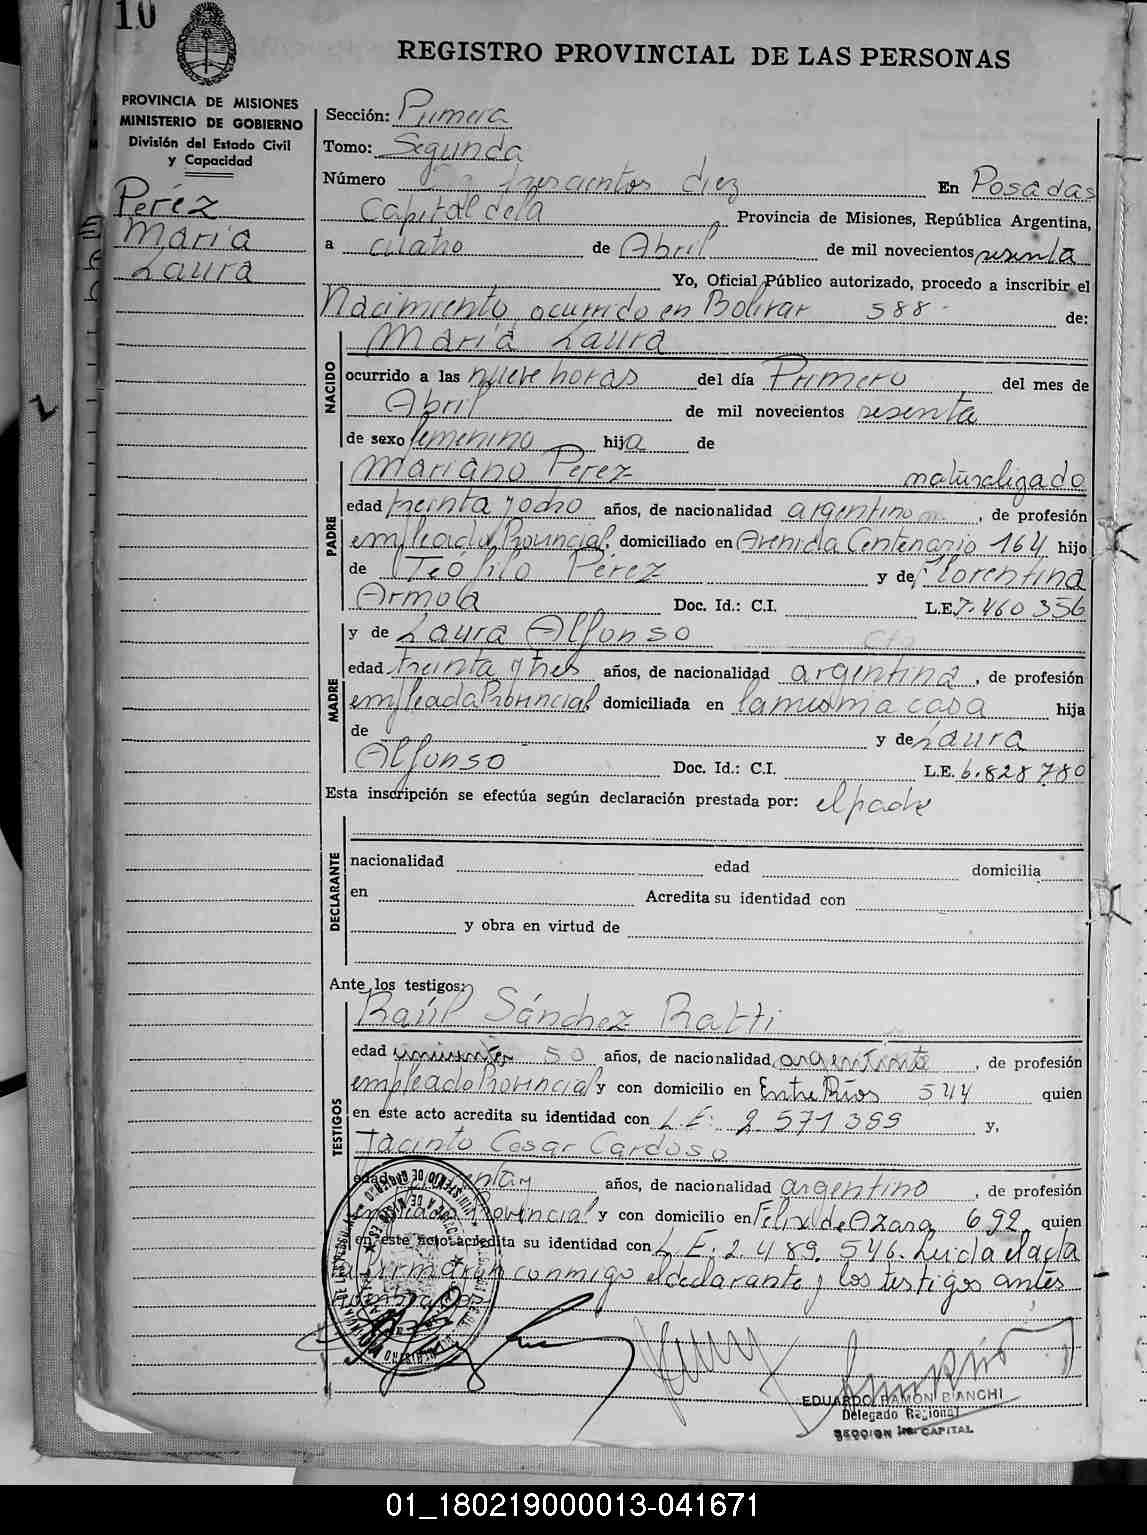 10
REGISTRO PROVINCIAL DE LAS PERSONAS
PROVINCIA DE MISIONES
MINISTERIO DE GOBIERNO
División del Estado Civil
y Capacidad
Peréz
María
Laura
Sección: Primera
Tomo: Segunda
Número trescientos diez En Posadas
Capital de la Provincia de Misiones, República Argentina,
a cuatro de Abril de mil novecientos sesenta
Yo, Oficial Público autorizado, procedo a inscribir el
Nacimiento ocurrido en Bolívar 588 de:
NACIDO
María Laura
ocurrido a las nueve horas del día Primero del mes de
Abril de mil novecientos sesenta
de sexo femenino hija de
PADRE
Mariano Pérez naturalizado
edad treinta y ocho años, de nacionalidad argentino, de profesión
empleado Provincial, domiciliado en Avenida Centenario 164 hijo
de Teófilo Pérez y de Florentina
Armoa Doc. Id.: C.I. L.E. 7.460 356
MADRE
y de Laura Alfonso
edad treinta y tres años, de nacionalidad argentina, de profesión
empleada Provincial domiciliada en la misma casa hija
de y de Laura
Alfonso Doc. Id.: C.I. L.E. 6.828 780
Esta inscripción se efectúa según declaración prestada por: el padre
DECLARANTE
nacionalidad edad domicilia
en Acredita su identidad con
y obra en virtud de
Ante los testigos:
TESTIGOS
Raúl Sánchez Ratti
edad 50 años, de nacionalidad argentino, de profesión
empleado Provincial y con domicilio en Entre Ríos 544 quien
en este acto acredita su identidad con L.E: 2 571 399 y,
Jacinto Cesar Cardoso
edad años, de nacionalidad argentino, de profesión
empleado Provincial y con domicilio en Felix de Azara 692 quien
en este acto acredita su identidad con L.E. 2.489.546. Leida el acta
la firmaron conmigo el declarante y los testigos antes
EDUARDO RAMON BIANCHI
Delegado Regional
SECCION 1ra CAPITAL
01_180219000013-041671